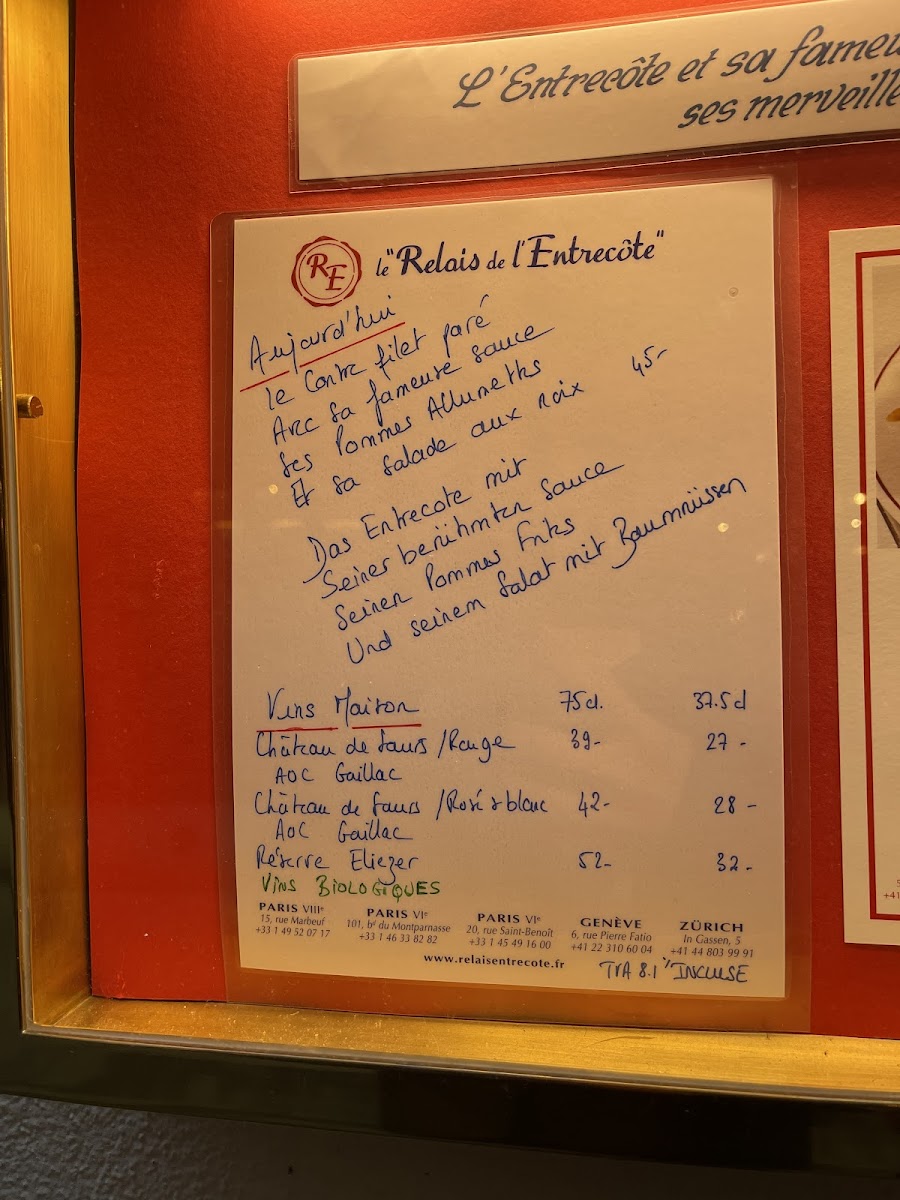 L'Entrecôte et sa fameu
ses merveille
RE
le "Relais de l'Entrecôte"
Aujourd'hui
Le Contre filet paré
Avec sa fameuse sauce
Ses Pommes Allumettes
Et sa salade aux noix 45-
Das Entrecote mit
Seiner berühmten Sauce
Seinen Pommes Frites
Und seinem Salat mit Baumnüssen
Vins Maison 75cl. 37.5cl
Château de Saurs /Rouge 39- 27-
AOC Gaillac
Château de Saurs /Rosé & blanc 42- 28-
AOC Gaillac
Réserve Eliezer 52- 32-
VINS BIOLOGIQUES
PARIS VIIIe PARIS VIe PARIS VIe GENÈVE ZÜRICH
15, rue Marbeuf 101, bd du Montparnasse 20, rue Saint-Benoît 6, rue Pierre Fatio In Gassen, 5
+33 1 49 52 07 17 +33 1 46 33 82 82 +33 1 45 49 16 00 +41 22 310 60 04 +41 44 803 99 91
www.relaisentrecote.fr TVA 8.1% INCLUSE